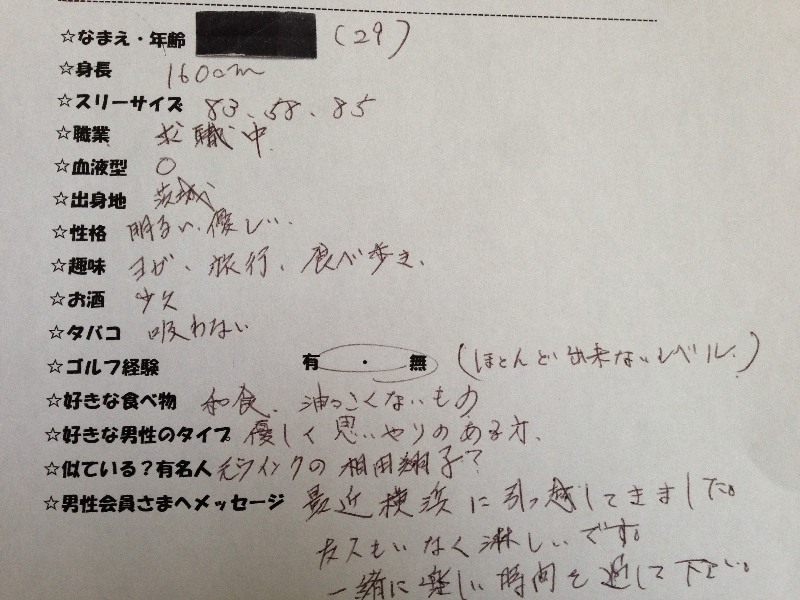 ☆なまえ・年齢 (29)
☆身長 160cm
☆スリーサイズ 83、58、85
☆職業 求職中
☆血液型 O
☆出身地 茨城
☆性格 明るい、優しい、
☆趣味 ヨガ、旅行、食べ歩き、
☆お酒 少々
☆タバコ 吸わない
☆ゴルフ経験 有・無 (ほとんど出来ないレベル。)
☆好きな食べ物 和食、油っこくないもの
☆好きな男性のタイプ 優しく思いやりのある方、
☆似ている?有名人 元ウインクの相田翔子?
☆男性会員さまへメッセージ 最近横浜に引っ越してきました。
友人もいなく淋しいです。
一緒に楽しい時間を過して下さい。